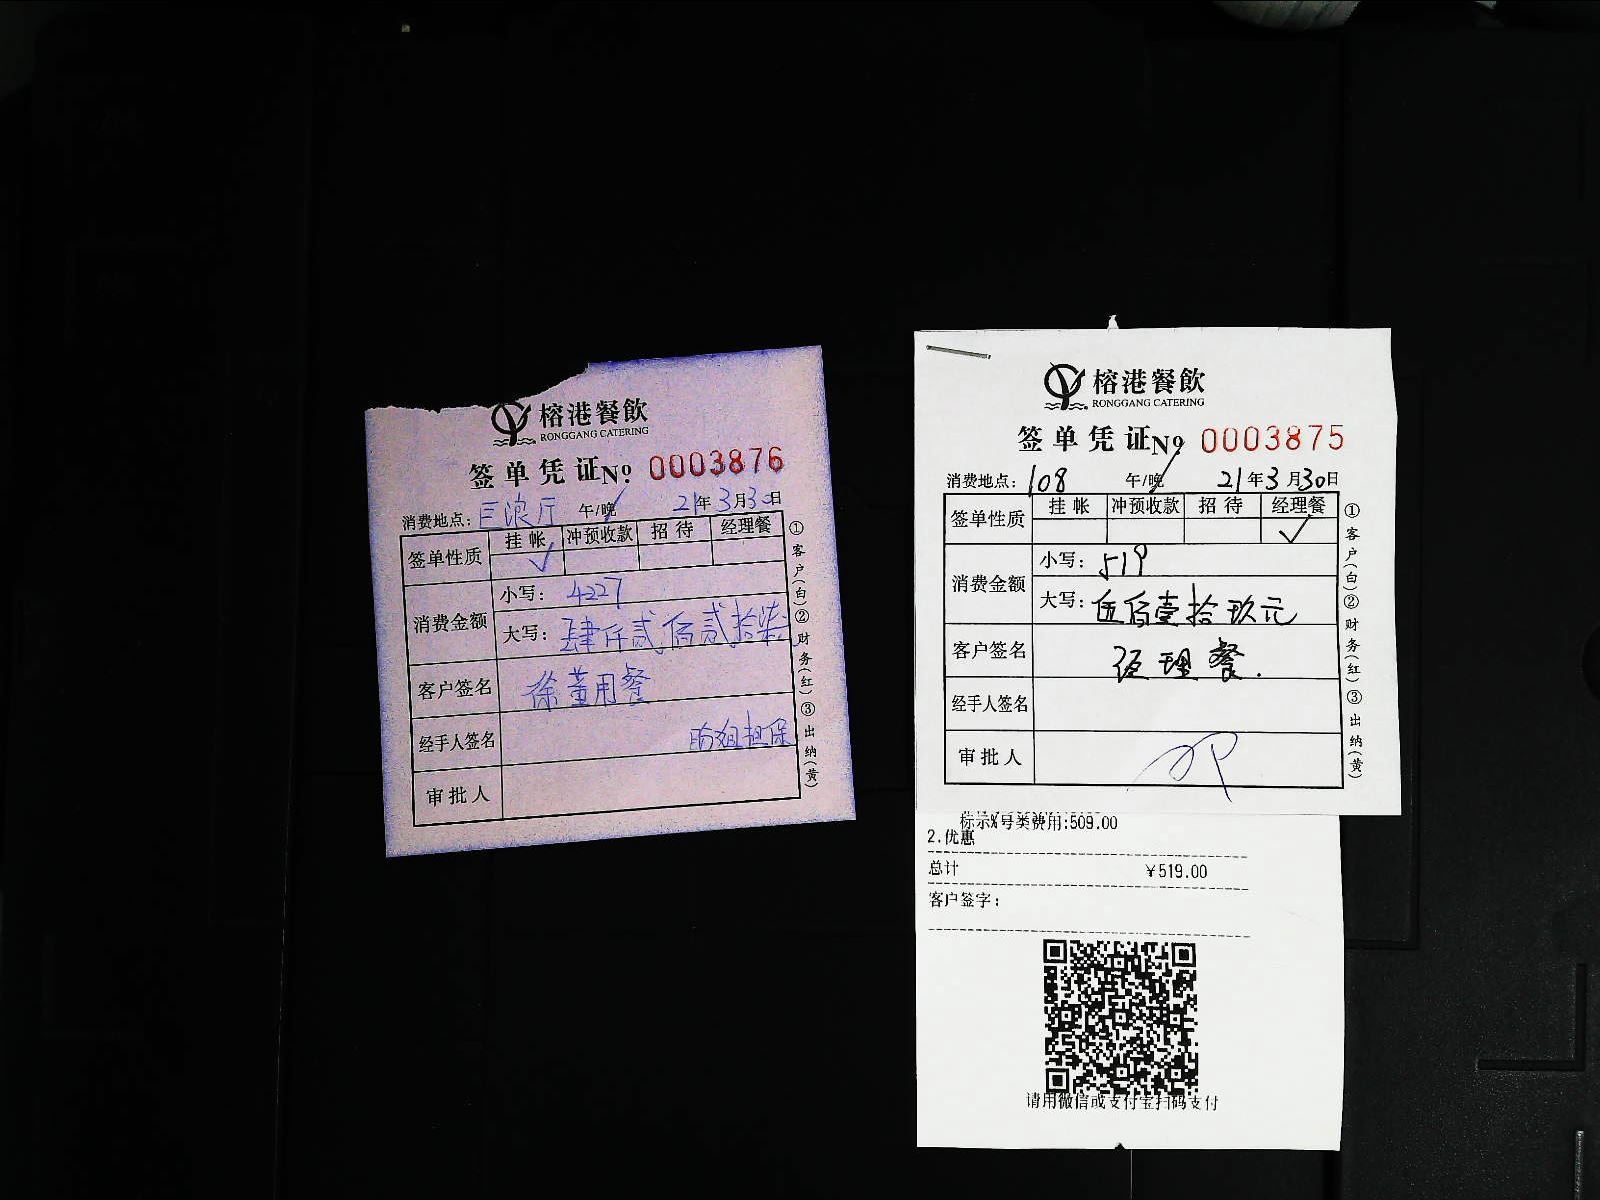 榕港餐飲
RONGGANG CATERING
签单凭证No 0003876
消费地点：巨浪厅 午/晚 21年3月30日
签单性质 挂帐 冲预收款 招待 经理餐
✓
消费金额
小写：4227
大写：肆仟贰佰贰拾柒
客户签名 徐董用餐
经手人签名 担保
审批人
①客户(白)②财务(红)③出纳(黄)
榕港餐飲
RONGGANG CATERING
签单凭证No 0003875
消费地点：108 午/晚 21年3月30日
签单性质 挂帐 冲预收款 招待 经理餐
✓
消费金额
小写：519
大写：伍佰壹拾玖元
客户签名 经理餐.
经手人签名
审批人
①客户(白)②财务(红)③出纳(黄)
标示%号类费用:509.00
2.优惠
总计 ¥519.00
客户签字：
请用微信或支付宝扫码支付